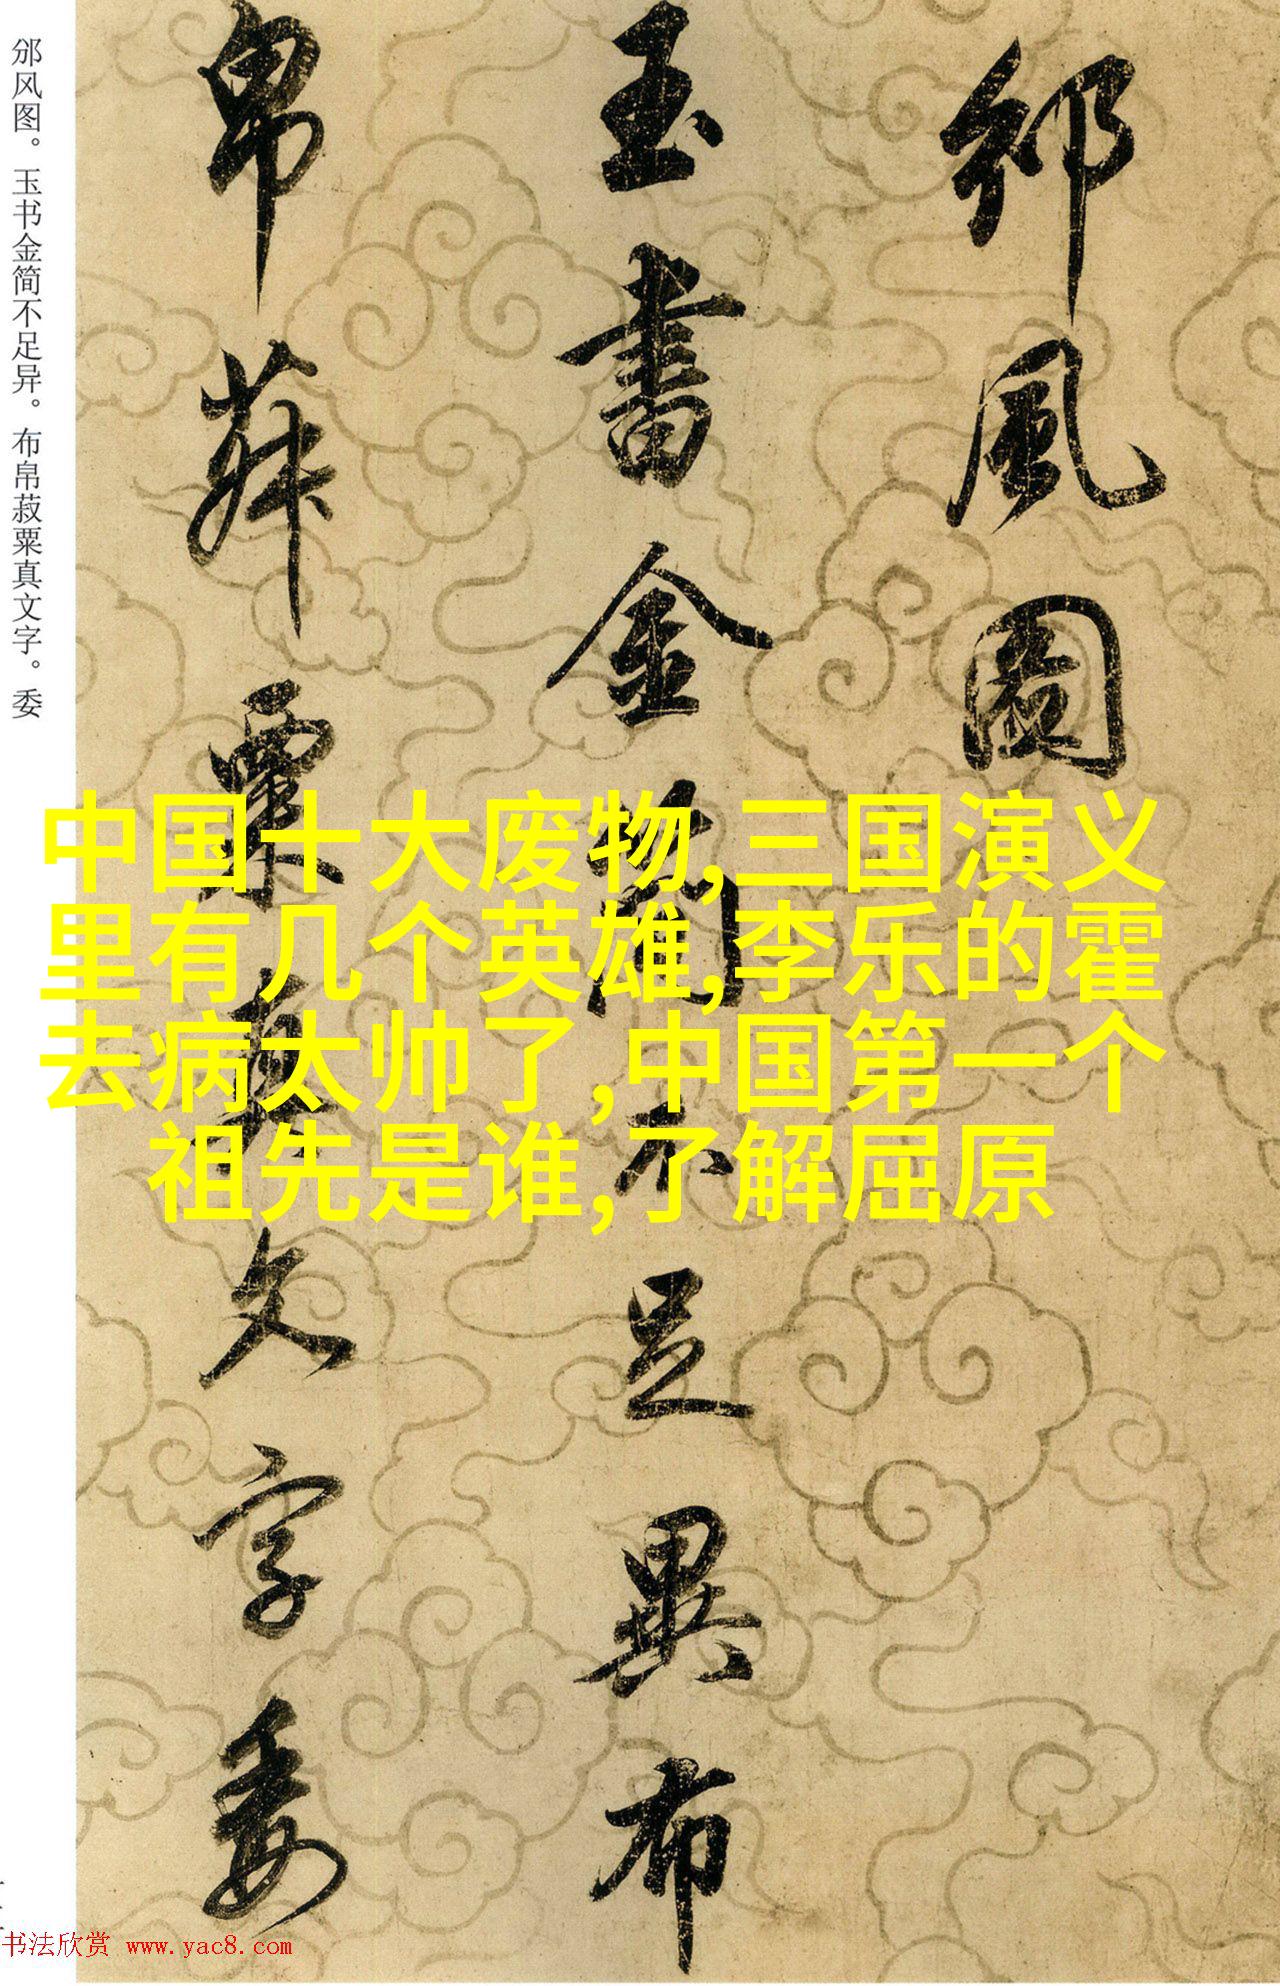 邠风图。玉书金简不足异。布帛菽粟真文字。委
邠風圖
玉書金簡不足異布
帛菽粟真文字委
中国十大废物,三国演义
里有几个英雄,李乐的霍
去病太帅了,中国第一个
祖先是谁,了解屈原
书法欣赏 www.yac8.com